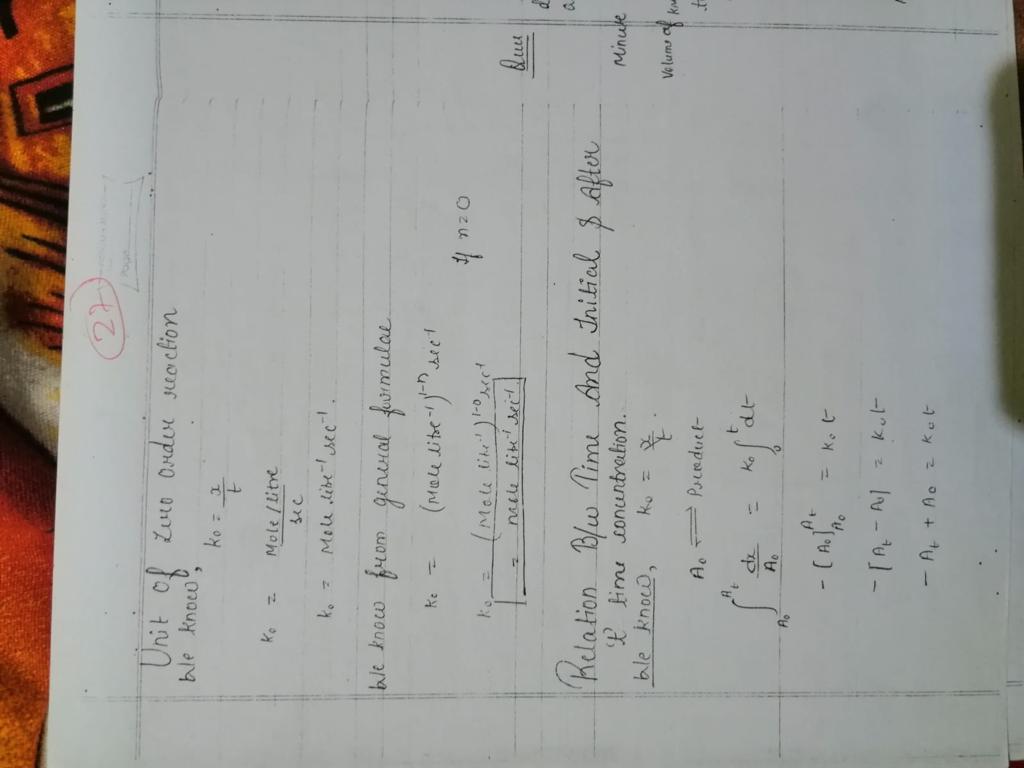 27
Unit of zero order reaction
We know,
k₀ = x/t
k₀ = Mole/litre / sec
k₀ = Mole litre⁻¹ sec⁻¹.
We know from general formulae
k₀ = (Mole litre⁻¹)¹⁻ⁿ sec⁻¹
if n=0
k₀ = (Mole litre⁻¹)¹⁻⁰ sec⁻¹
= mole litre⁻¹ sec⁻¹
Relation B/w Time And Initial & After
't' time concentration.
We know, k₀ = x/t.
A₀ ⇌ Product
∫_{A₀}^{A_t} dx/A₀ = k₀ ∫^{t} dt
- [A₀]_{A₀}^{A_t} = k₀ t
- [A_t - A₀] = k₀ t
- A_t + A₀ = k₀ t
Minute
Volume of